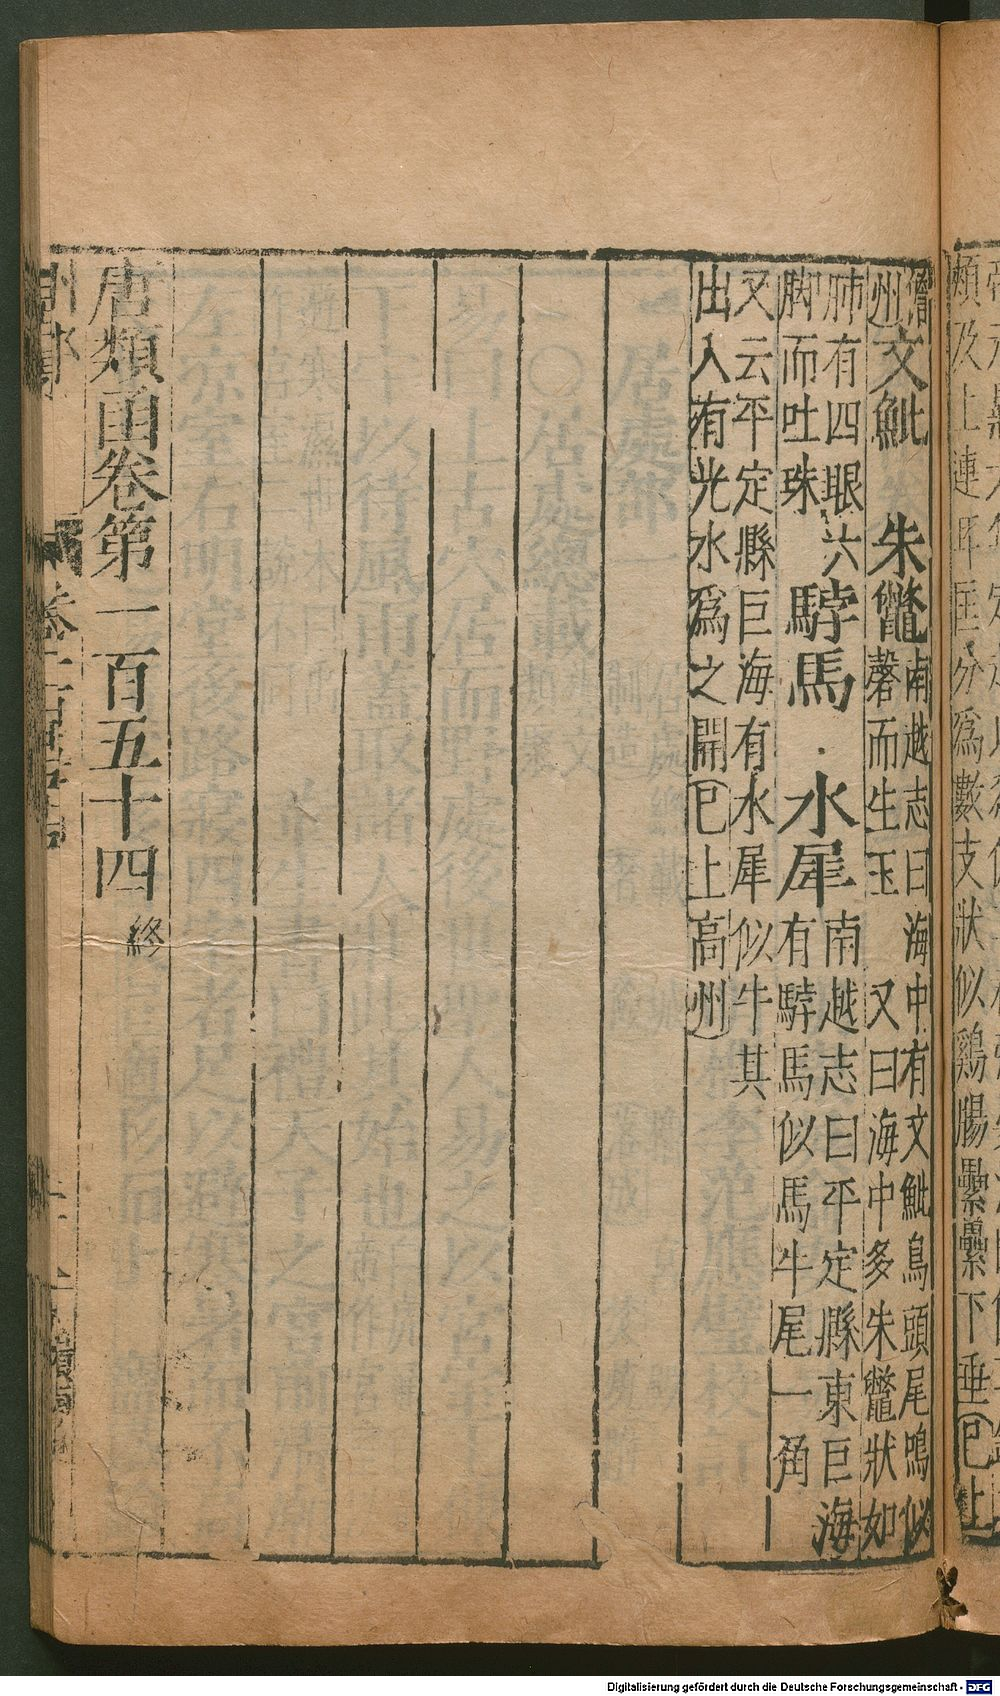 頰及上連耳匡分爲數支狀似鷄腸纍纍下垂已上
儋
州文魮 朱鼈
南越志曰海中有文魮鳥頭尾鳴似
磬而生玉 又曰海中多朱鼈狀如
肺有四眼六
脚而吐珠
䮷馬 水犀
南越志曰平定縣東巨海
有䮷馬似馬牛尾一角
又云平定縣巨海有水犀似牛其
出入有光水爲之開已上高州
唐類函卷第一百五十四 終
Digitalisierung gefördert durch die Deutsche Forschungsgemeinschaft - DFG